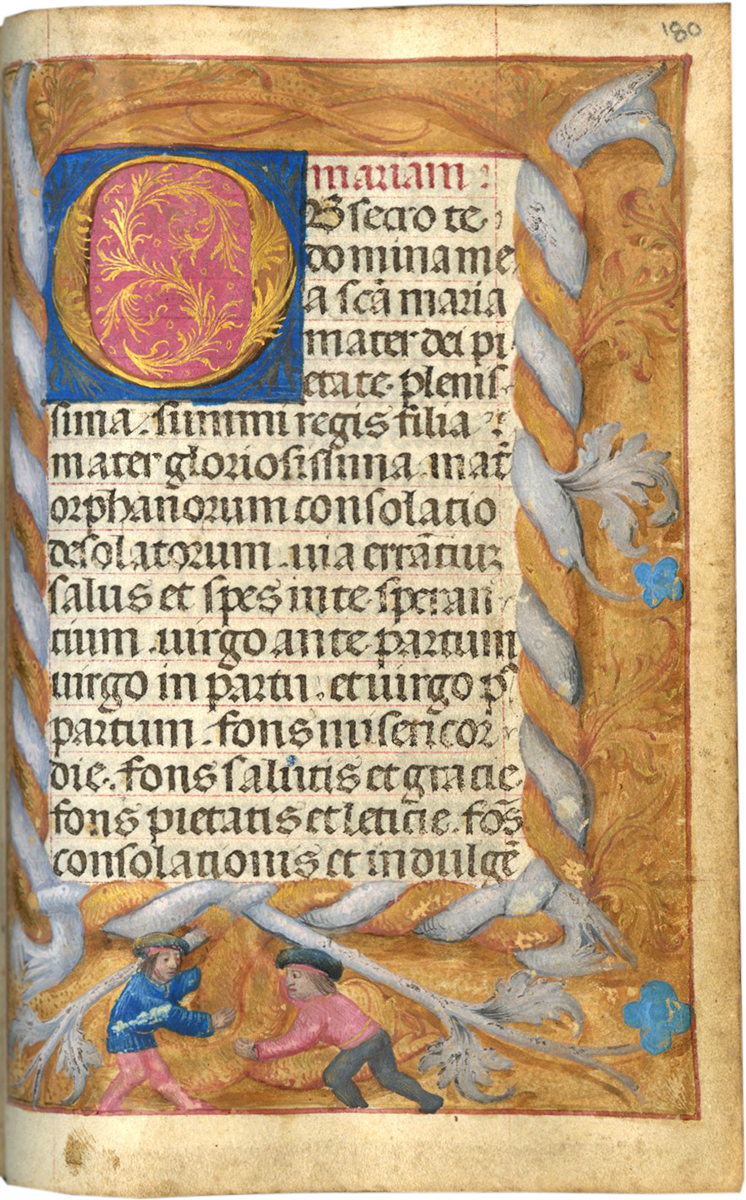 180
mariam :
OBsecro te
domina me
a sc̄a maria
mater dei pi
etate plenis-
sima. summi regis filia
mater gloriosissima. mat̄
orphanorum consolatio
desolatorum. uia errāciuꝫ
salus et spes in te speran
cium. uirgo ante partum
uirgo in partu. et uirgo p̄
partum. fons misericor
die. fons salutis et gracie
fons pietatis et leticie. fōs
consolationis et indulgē